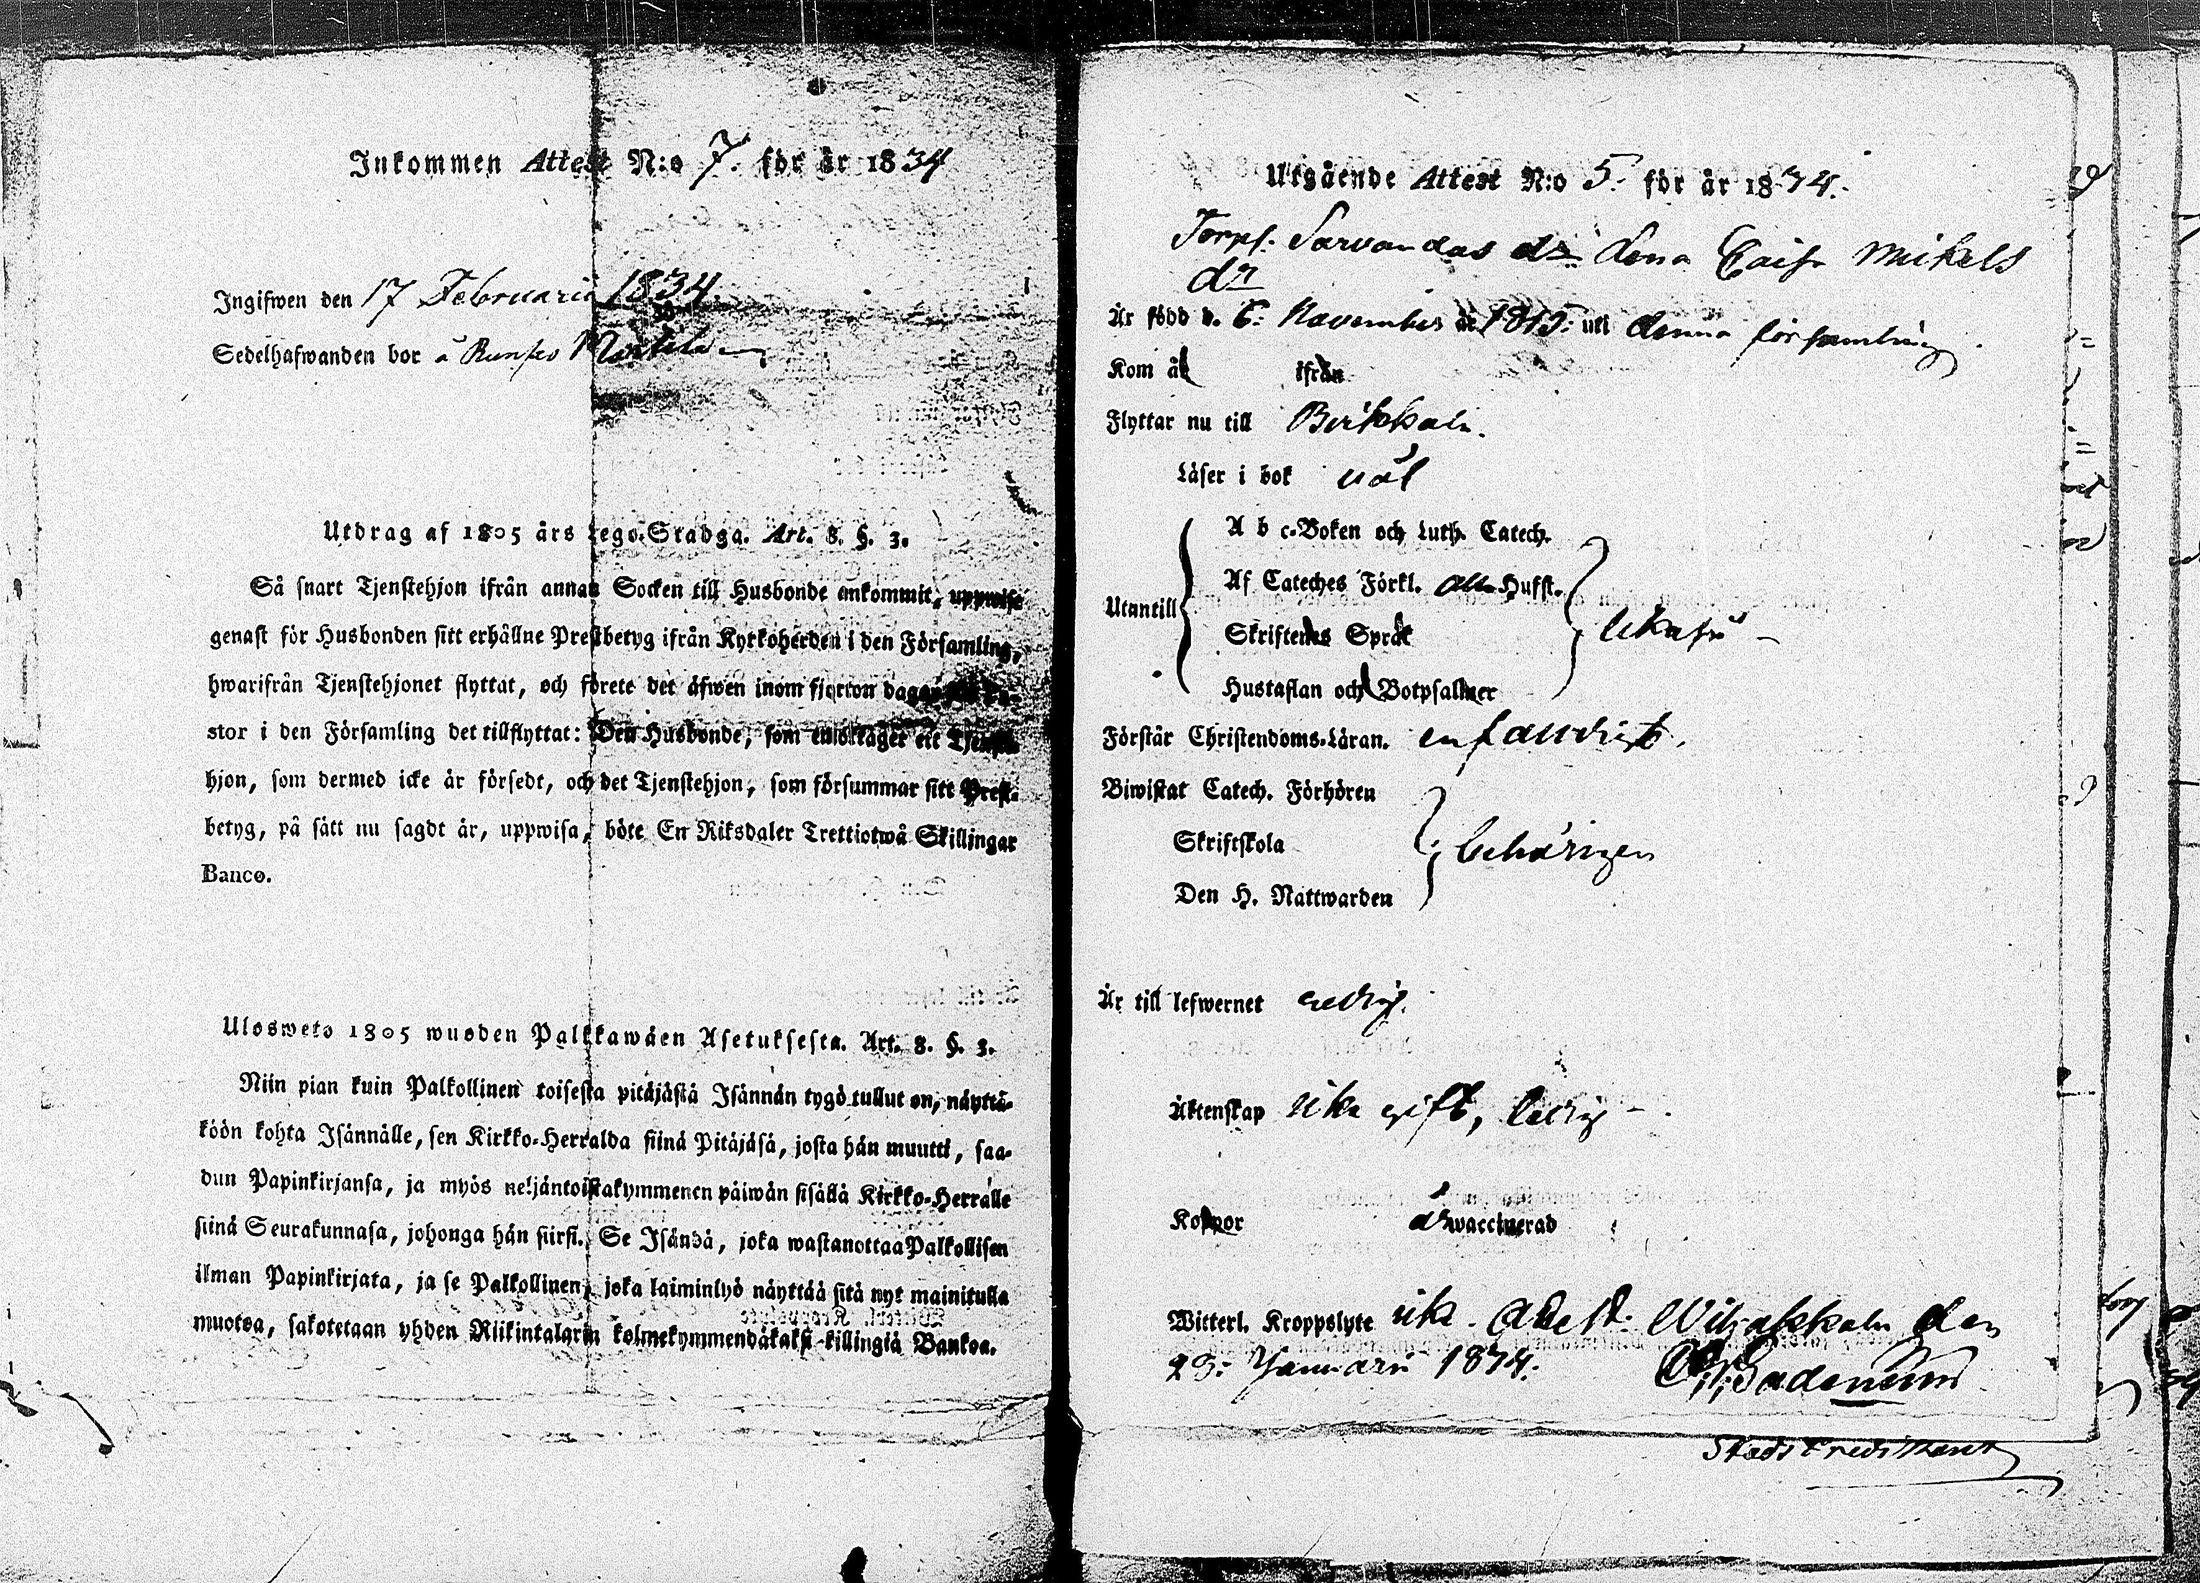 Inkommen Attest N:o 7. för år 1834
Ingifwen den 17 Februarii 1834.
Sedelhafwanden bor å
Utdrag af 1805 års Lego-Stadga. Art. 8. §. 3.
Så snart Tjenstehjon ifrån annan Socken till Husbonde ankommit, uppwise
genast för Husbonden sitt erhållne Prestbetyg ifrån Kyrkoherden i den Församling,
hwarifrån Tjenstehjonet flyttat, och förete det äfwen inom fjorton dagar
stor i den Församling det tillflyttat: Den Husbonde, som emottager ett Tjenste-
hjon, som dermed icke är försedt, och det Tjenstehjon, som försummar sitt Prest-
betyg, på sätt nu sagdt är, uppwisa, böte En Riksdaler Trettiotwå Skillingar
Banco.
Ulosweto 1805 wuoden Palkkawäen Asetuksesta. Art. 8. §. 3.
Niin pian kuin Palkollinen toisesta pitäjästä Isännän tygö tullut on, näyttä-
köön kohta Isännälle, sen Kirkko-Herralda siinä Pitäjäsä, josta hän muutti, saa-
dun Papinkirjansa, ja myös neljäntoistakymmenen päiwän sisällä Kirkko-Herralle
siinä Seurakunnasa, johonga hän siirsi. Se Isändä, joka wastanottaa Palkollisen
ilman Papinkirjata, ja se Palkollinen, joka laiminlyö näyttää sitä nyt mainitulla
muotoa, sakotetaan yhden Riikintalarin kolmekymmendäkaksi killingiä Bankoa.
Utgående Attest N:o 5. för år 1834.
Torp. Sarvandas dr Lena Caisa Mikels
dr
Är född d. 6. November år 1815. uti denna församling.
Kom år ifrån
Flyttar nu till Birkkala.
Läser i bok väl
A b c-Boken och Luth. Catech.
Af Cateches Förkl. alla Hufst.
Utantill Skriftenes Språk likaså
Hustaflan och Botpsalmer
Förstår Christendoms-Läran. enfaldigt.
Biwistat Catech. Förhören
Skriftskola behörigen
Den H. Nattwarden
Är till lefwernet redlig.
Äktenskap icke gift, ledig
Koppor är waccinerad
Witterl. Kroppslyte icke. Attest. Wiljakkala den
23. Januarii 1834.